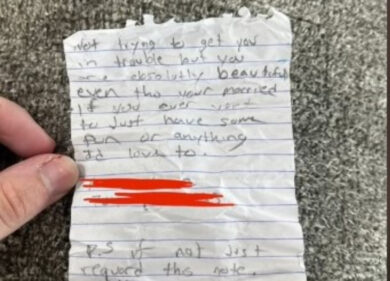 Not trying to get you
in trouble but you
are absolutly beautiful
even tho your married
If you ever want
to Just have some
fun or anything
I'd love to.
P.S if not Just
reguard this note.